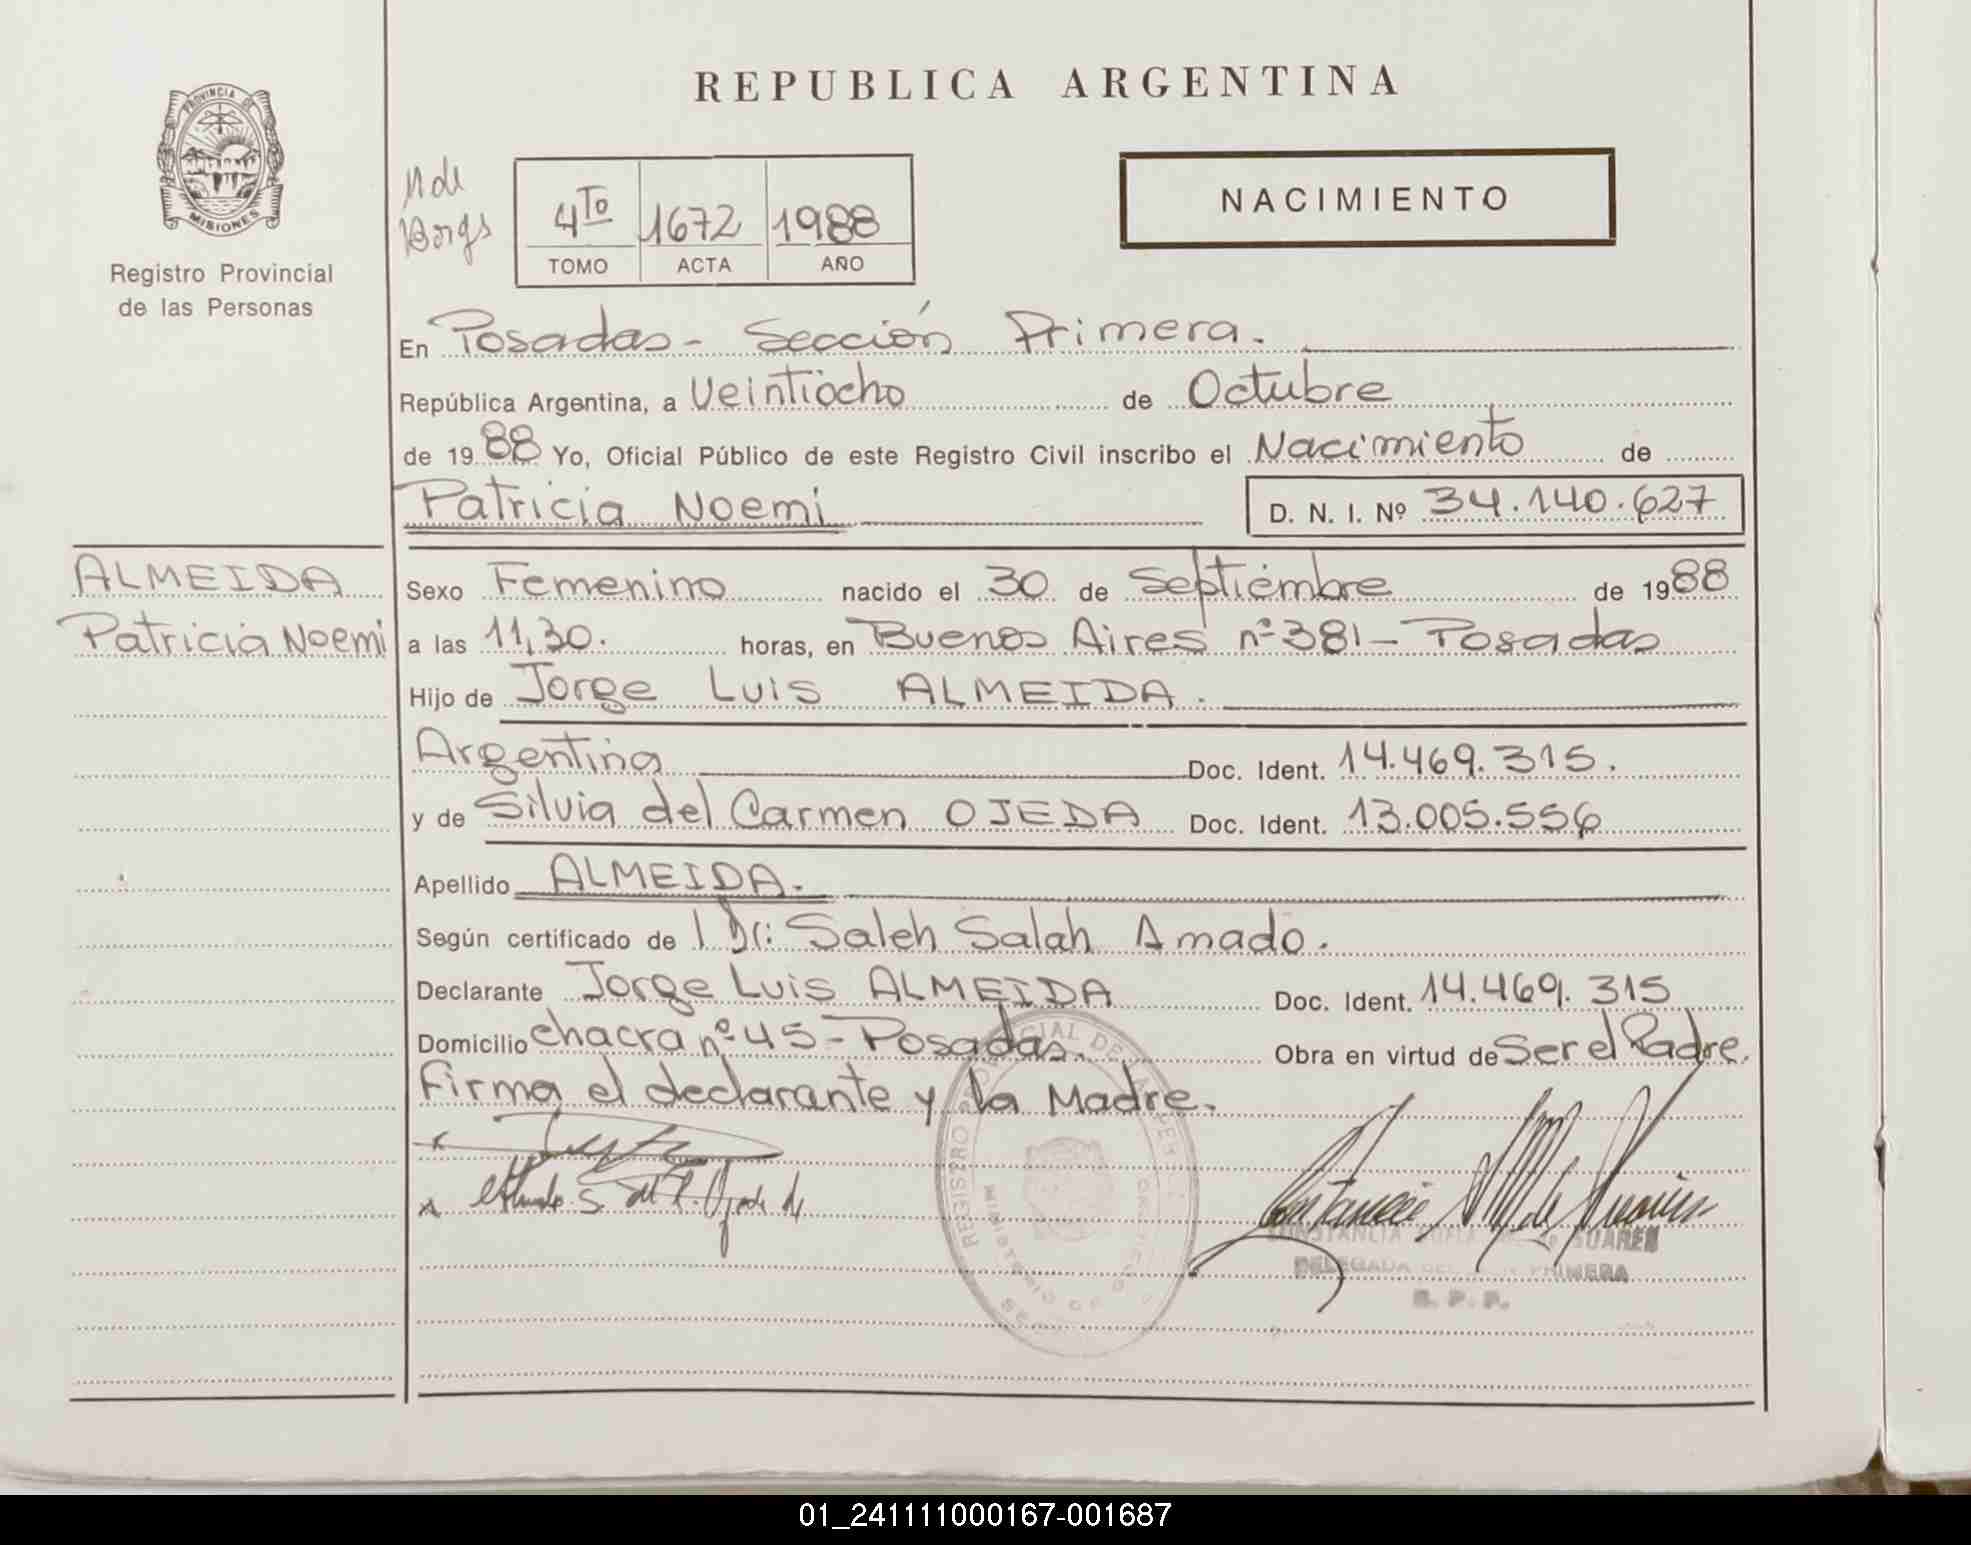 REPUBLICA ARGENTINA
PROVINCIA DE
MISIONES
Registro Provincial
de las Personas
4to 1672 1988
TOMO ACTA AÑO
NACIMIENTO
En Posadas - Sección Primera.
República Argentina, a Veintiocho de Octubre
de 1988 Yo, Oficial Público de este Registro Civil inscribo el Nacimiento de
Patricia Noemi D. N. I. Nº 34.140.627
ALMEIDA
Patricia Noemi
Sexo Femenino nacido el 30 de Septiembre de 1988
a las 11,30. horas, en Buenos Aires nº 381 - Posadas
Hijo de Jorge Luis ALMEIDA.
Argentina Doc. Ident. 14.469.315.
y de Silvia del Carmen OJEDA Doc. Ident. 13.005.556
Apellido ALMEIDA.
Según certificado de l Dr: Saleh Salah Amado.
Declarante Jorge Luis ALMEIDA Doc. Ident. 14.469.315
Domicilio chacra nº 45 - Posadas. Obra en virtud de Ser el Padre.
Firma el declarante y la Madre.
REGISTRO PROVINCIAL DE LAS PERSONAS
MINISTERIO DE GOBIERNO
CONSTANCIA SUAREZ
DELEGADA PRIMERA
R. P. P.
01_241111000167-001687